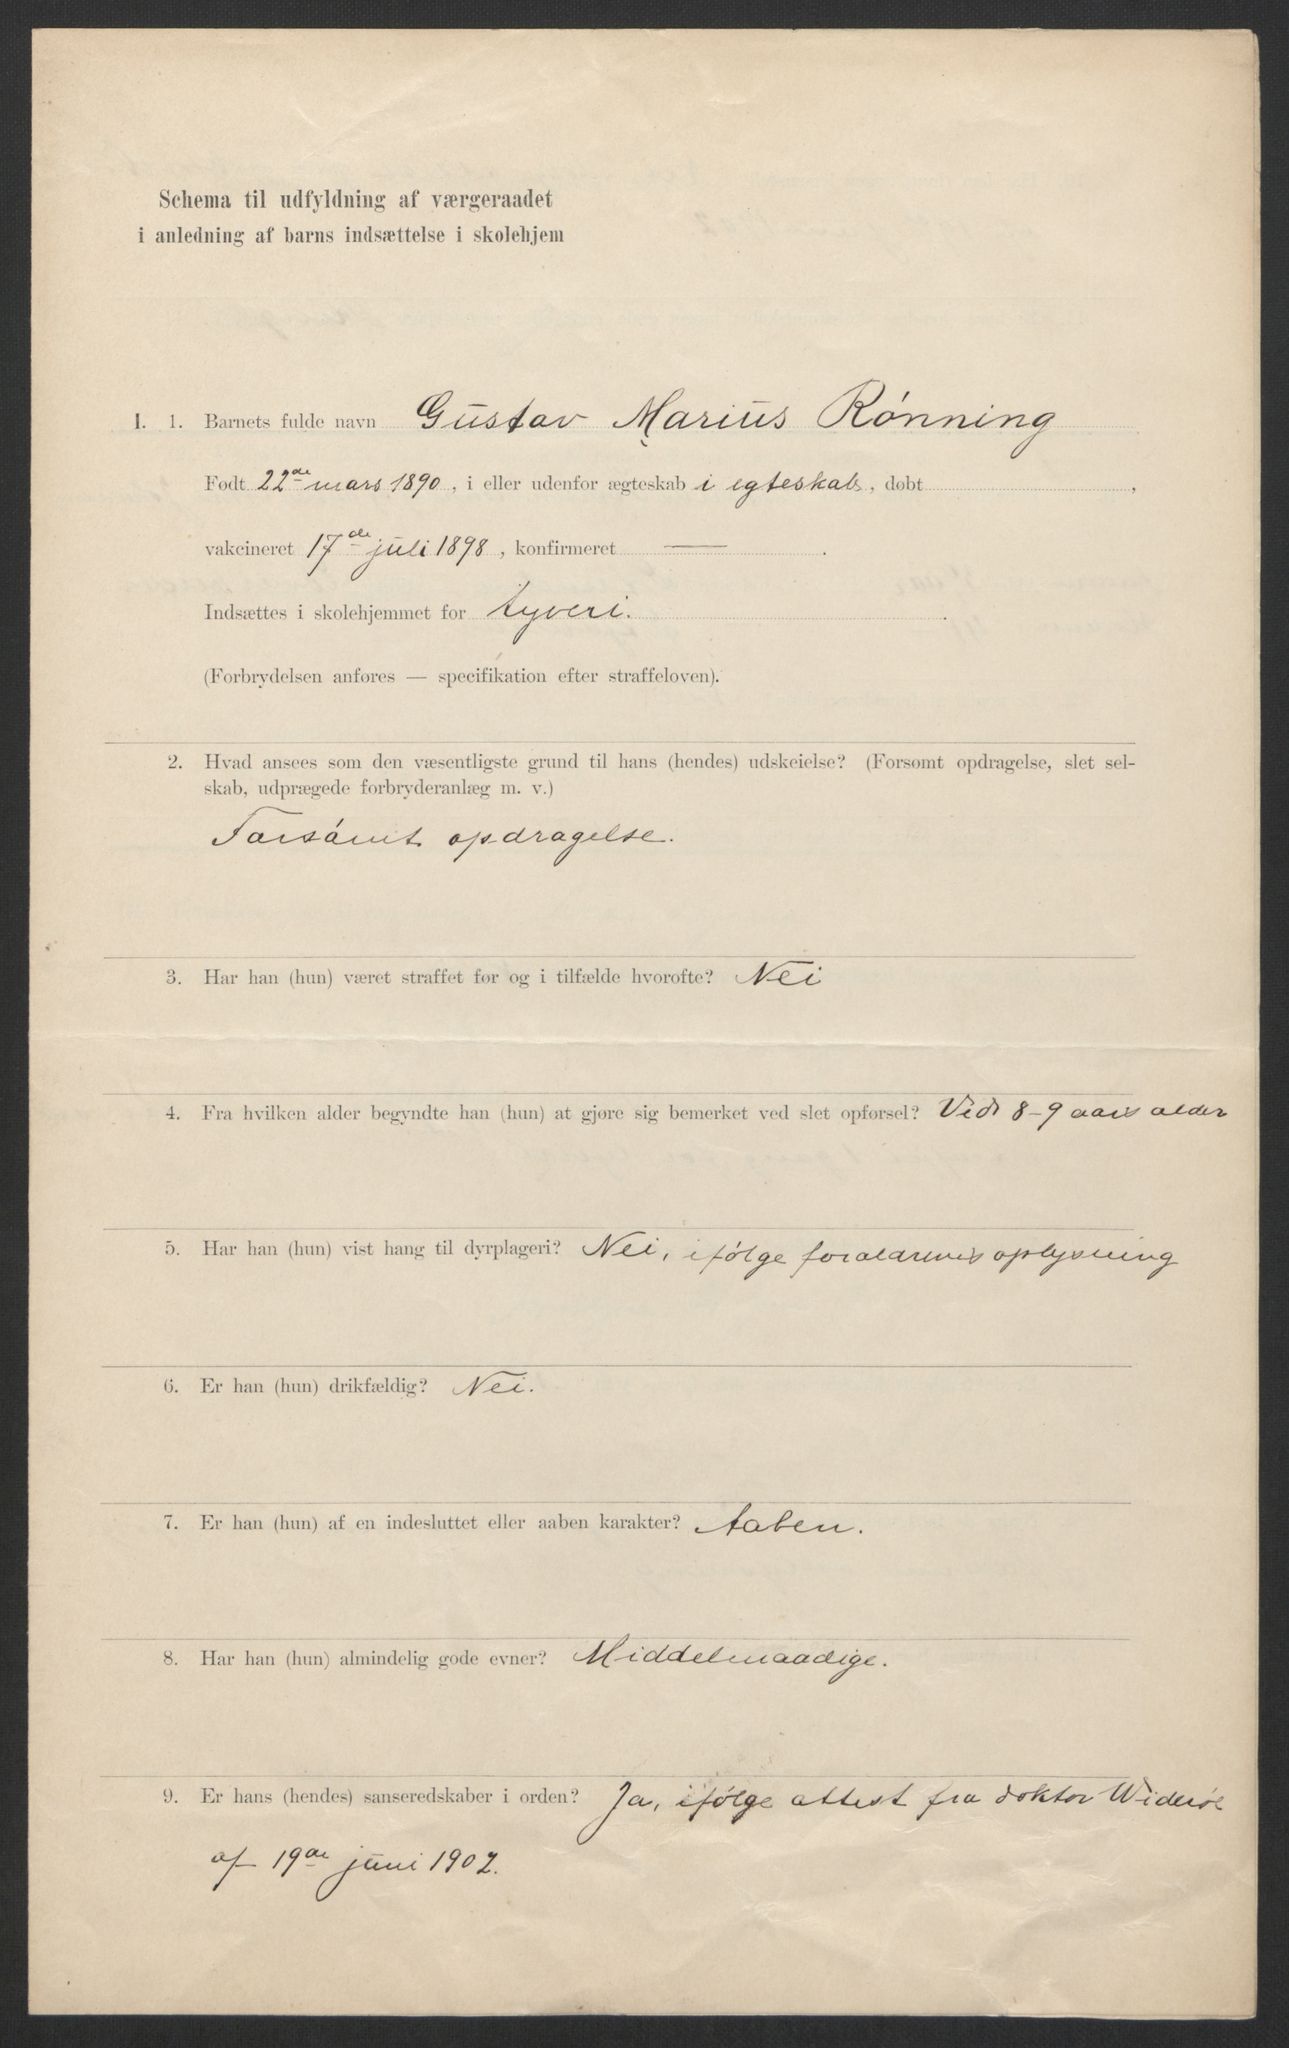 Schema til udfyldning af værgeraadet
i anledning af barns indsættelse i skolehjem
I. 1. Barnets fulde navn Gustav Marius Rønning
Født 22de mars 1890, i eller udenfor ægteskab i egteskab, døbt ,
vakcineret 17de juli 1898, konfirmeret — .
Indsættes i skolehjemmet for tyveri.
(Forbrydelsen anføres — specifikation efter straffeloven).
2. Hvad ansees som den væsentligste grund til hans (hendes) udskeielse? (Forsømt opdragelse, slet sel-
skab, udprægede forbryderanlæg m. v.)
Forsømt opdragelse.
3. Har han (hun) været straffet før og i tilfælde hvorofte? Nei
4. Fra hvilken alder begyndte han (hun) at gjøre sig bemerket ved slet opførsel? Ved 8-9 aars alder
5. Har han (hun) vist hang til dyrplageri? Nei, ifølge forældrenes oplysning
6. Er han (hun) drikfældig? Nei.
7. Er han (hun) af en indesluttet eller aaben karakter? Aaben.
8. Har han (hun) almindelig gode evner? Middelmaadige.
9. Er hans (hendes) sanseredskaber i orden? Ja, ifølge attest fra doktor Widerøe
af 19de juni 1902.